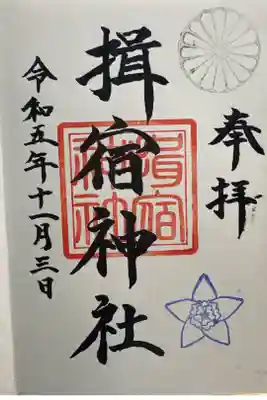 奉拝
揖宿神社
揖宿神社
令和五年十一月三日